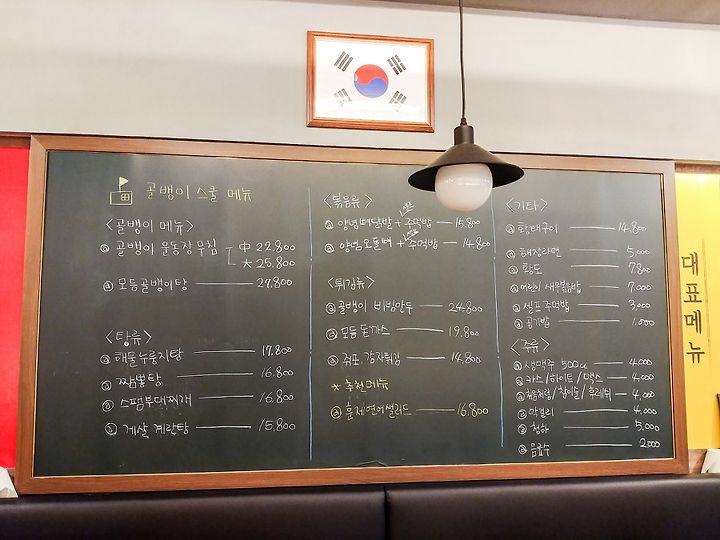 골뱅이 스쿨 메뉴
<골뱅이 메뉴>
골뱅이 운동장무침 中 22.800
大 25.800
모듬골뱅이탕 27.800
<탕류>
해물누룽지탕 17.800
짬뽕탕 16.800
스팸부대찌개 16.800
게살 계란탕 15.800
<볶음류>
양념뼈닭발 + 주먹밥 15.800
양념오돌뼈 + 주먹밥 14.800
<튀김류>
골뱅이 비빔만두 24.800
모듬돈까스 19.800
쥐포 감자튀김 14.800
* 추천메뉴
훈제연어샐러드 16.800
<기타>
황태구이 14.800
해장라면 5,000
황도 7.800
어린이 새우볶음밥 7,000
셀프주먹밥 3,000
공기밥 1.000
<주류>
생맥주 500cc 4,000
카스/하이트/맥스 4,000
처음처럼/참이슬/후레쉬 4,000
막걸리 4,000
청하 5,000
음료수 2,000
대표메뉴